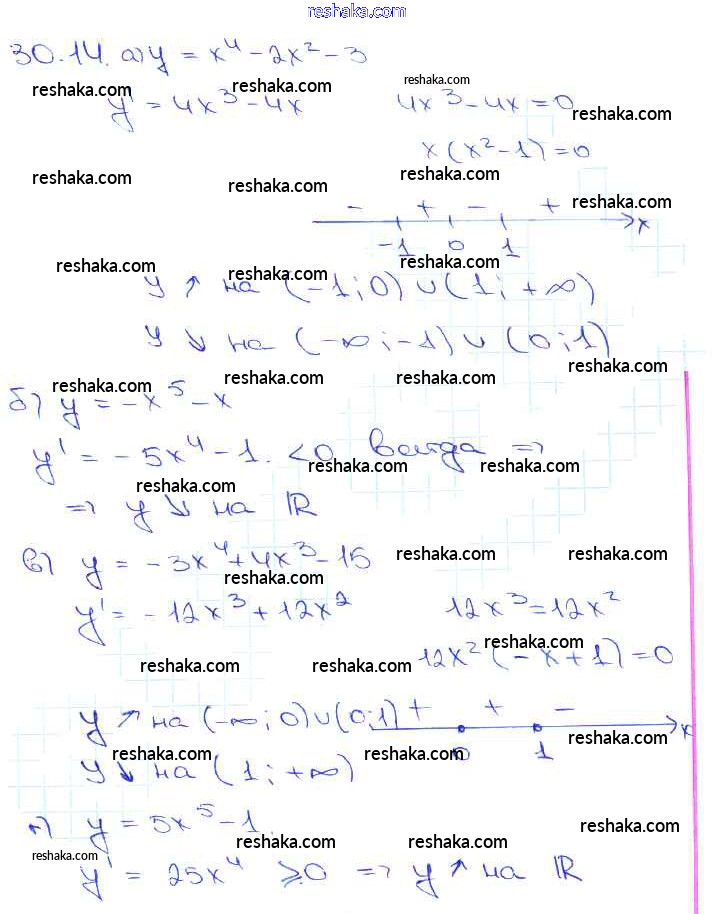 reshaka.com
30.14. а) y = x⁴ - 2x² - 3
reshaka.com
reshaka.com reshaka.com
y' = 4x³ - 4x 4x³ - 4x = 0
reshaka.com
x(x² - 1) = 0
reshaka.com reshaka.com reshaka.com
- + - + reshaka.com
-1 0 1 x
reshaka.com reshaka.com reshaka.com
y ↑ на (-1; 0) ∪ (1; +∞)
y ↓ на (-∞; -1) ∪ (0; 1)
reshaka.com reshaka.com reshaka.com
б) y = -x⁵ - x
y' = -5x⁴ - 1 < 0 всегда =>
reshaka.com reshaka.com reshaka.com
=> y ↓ на ℝ
в) y = -3x⁴ + 4x³ - 15
reshaka.com reshaka.com reshaka.com
y' = -12x³ + 12x² 12x³ = 12x²
reshaka.com
12x²(-x + 1) = 0
reshaka.com reshaka.com
y ↑ на (-∞; 0) ∪ (0; 1) + + -
0 1 x
reshaka.com reshaka.com reshaka.com
y ↓ на (1; +∞)
г) y = 5x⁵ - 1
reshaka.com reshaka.com reshaka.com
reshaka.com
y' = 25x⁴ ⩾ 0 => y ↑ на ℝ